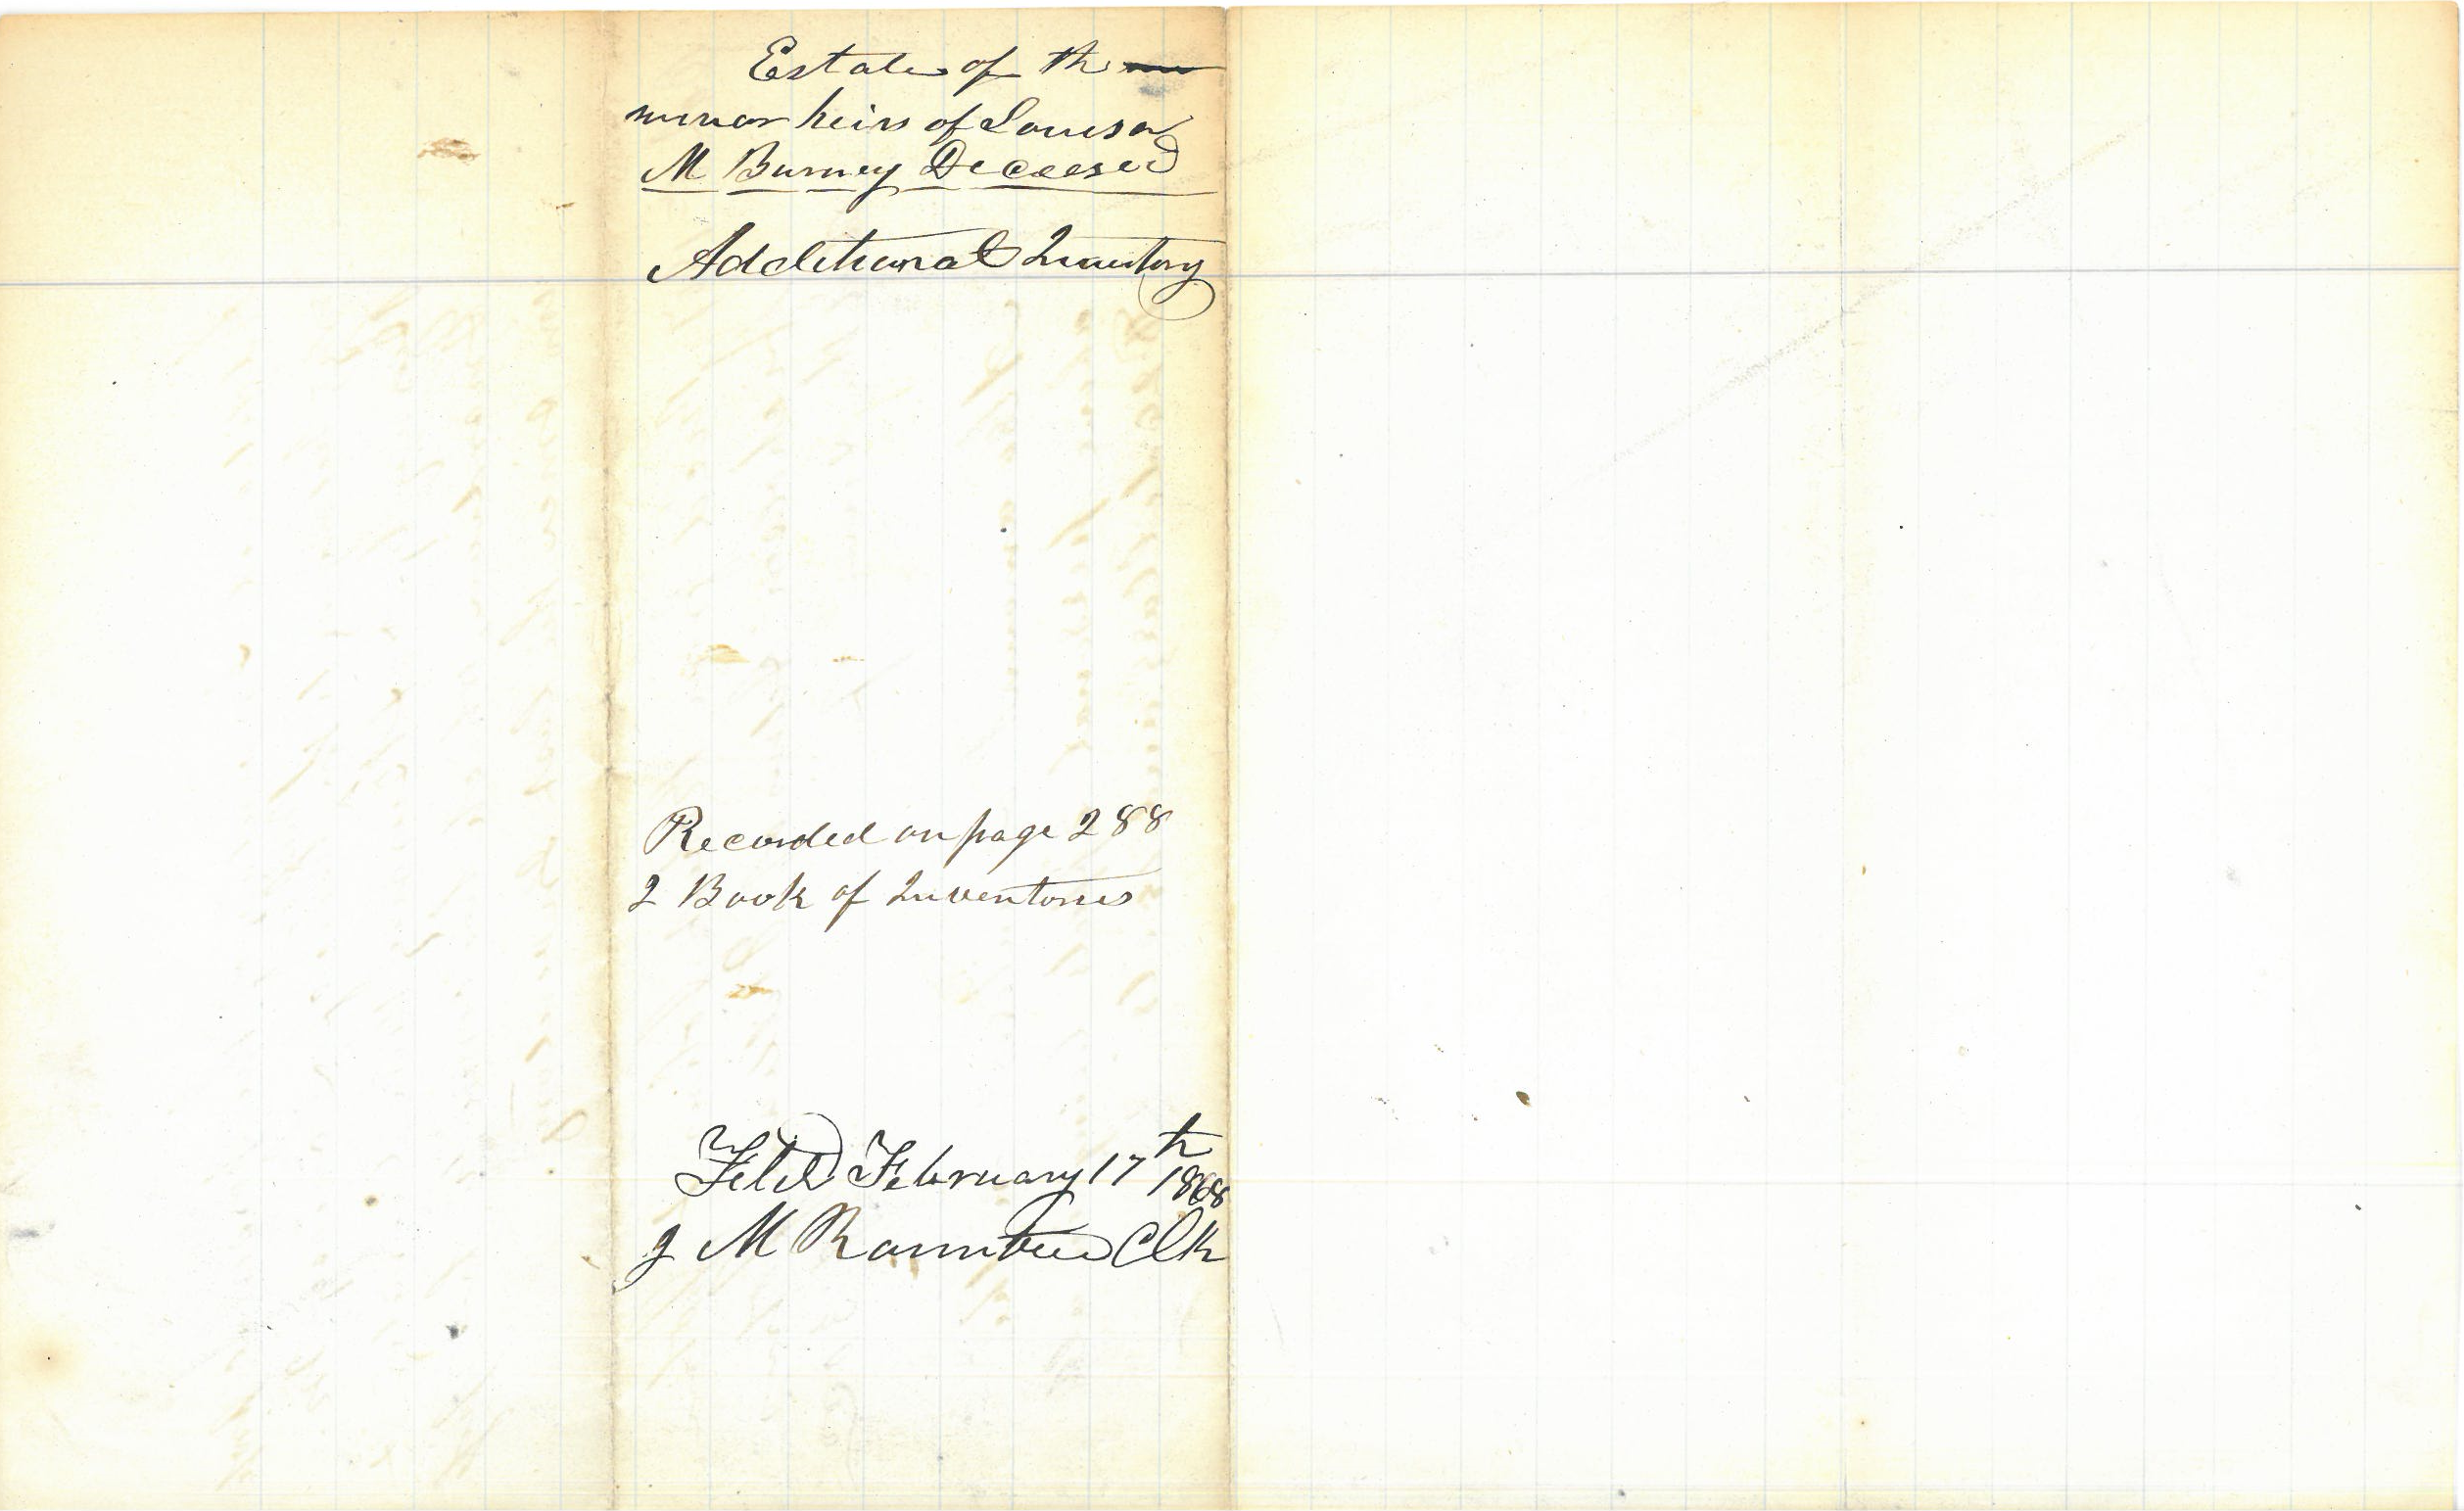 Estate of the
minor heirs of Louisa
M Burney Deceased
Additional Inventory
Recorded on page 288
2 Book of Inventories
Filed February 17th 1868
J M Rountree Clk